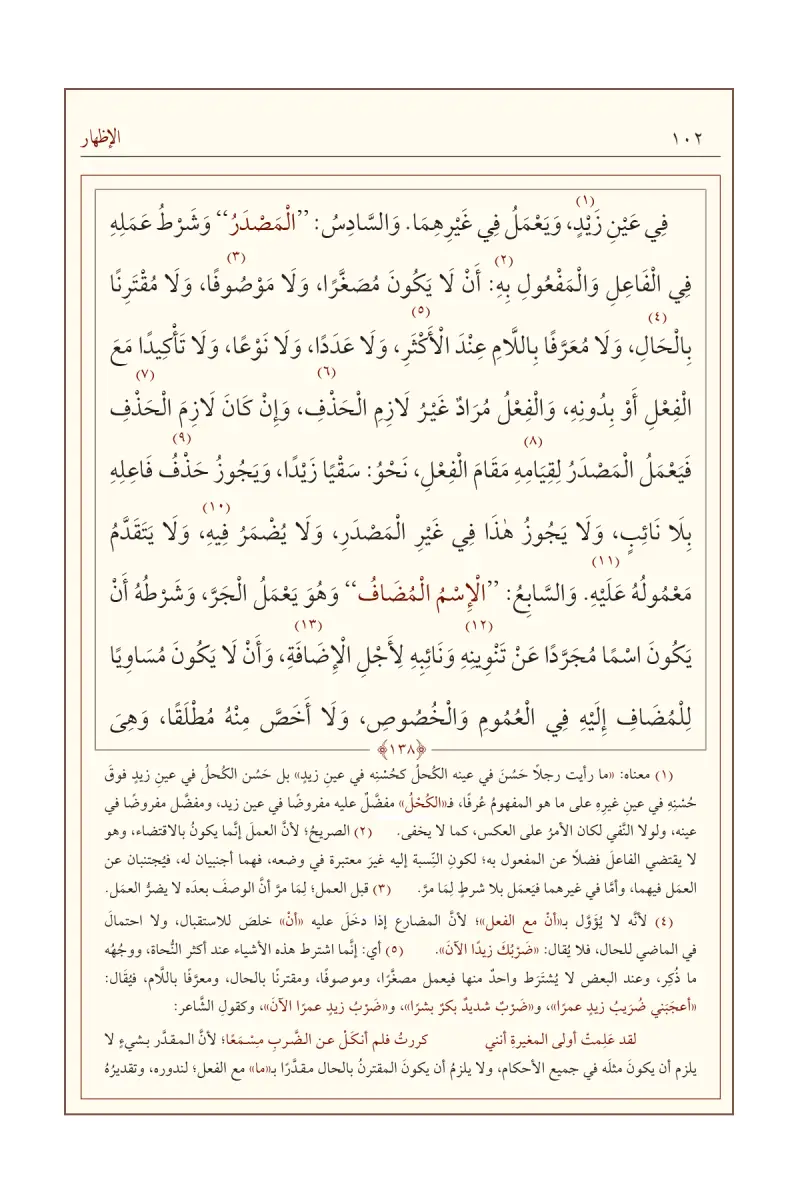 ١٠٢ الإظهار
فِي عَيْنِ زَيْدٍ، (١) وَيَعْمَلُ فِي غَيْرِهِمَا. وَالسَّادِسُ: ’’الْمَصْدَرُ‘‘ وَشَرْطُ عَمَلِهِ
فِي الْفَاعِلِ وَالْمَفْعُولِ بِهِ: (٢) أَنْ لَا يَكُونَ مُصَغَّرًا، وَلَا مَوْصُوفًا، (٣) وَلَا مُقْتَرِنًا
بِالْحَالِ، (٤) وَلَا مُعَرَّفًا بِاللَّامِ عِنْدَ الْأَكْثَرِ، (٥) وَلَا عَدَدًا، وَلَا نَوْعًا، وَلَا تَأْكِيدًا مَعَ
الْفِعْلِ أَوْ بِدُونِهِ، وَالْفِعْلُ مُرَادٌ غَيْرُ لَازِمِ الْحَذْفِ، (٦) وَإِنْ كَانَ لَازِمَ الْحَذْفِ (٧)
فَيَعْمَلُ الْمَصْدَرُ لِقِيَامِهِ مَقَامَ الْفِعْلِ، (٨) نَحْوُ: سَقْيًا زَيْدًا، وَيَجُوزُ حَذْفُ (٩) فَاعِلِهِ
بِلَا نَائِبٍ، وَلَا يَجُوزُ هٰذَا فِي غَيْرِ الْمَصْدَرِ، وَلَا يُضْمَرُ فِيهِ، (١٠) وَلَا يَتَقَدَّمُ
مَعْمُولُهُ عَلَيْهِ. وَالسَّابِعُ: ’’الْإِسْمُ الْمُضَافُ‘‘ وَهُوَ يَعْمَلُ الْجَرَّ، (١١) وَشَرْطُهُ أَنْ
يَكُونَ اسْمًا مُجَرَّدًا عَنْ تَنْوِينِهِ (١٢) وَنَائِبِهِ لِأَجْلِ الْإِضَافَةِ، (١٣) وَأَنْ لَا يَكُونَ مُسَاوِيًا
لِلْمُضَافِ إِلَيْهِ فِي الْعُمُومِ وَالْخُصُوصِ، وَلَا أَخَصَّ مِنْهُ مُطْلَقًا، وَهِىَ
﴿١٣٨﴾
(١) معناه: «ما رأيت رجلًا حَسُنَ في عينه الكُحلُ كحُسْنِه في عينِ زيدٍ» بل حَسُن الكُحلُ في عينِ زيدٍ فوقَ
حُسْنِهِ في عينِ غيرِهِ على ما هو المفهومُ عُرفًا، فـ«الكُحْلُ» مفضَّلٌ عليه مفروضًا في عين زيد، ومفضَّل مفروضًا في
عينه، ولولا النَّفي لكان الأمرُ على العكس، كما لا يخفى. (٢) الصريحُ؛ لأنَّ العملَ إنَّما يكونُ بالاقتضاء، وهو
لا يقتضي الفاعلَ فضلًا عن المفعول به؛ لكونِ النِّسبة إليه غيرَ معتبرة في وضعه، فهما أجنبيان له، فيُجتنبان عن
العمَل فيهما، وأمَّا في غيرهما فيَعمَل بلا شرطٍ لِمَا مرَّ. (٣) قبل العمل؛ لِمَا مرَّ أنَّ الوصفَ بعدَه لا يضرُّ العمَل.
(٤) لأنَّه لا يُؤَوَّل بـ«أنْ مع الفعل»؛ لأنَّ المضارع إذا دخَلَ عليه «أنْ» خلصَ للاستقبال، ولا احتمالَ
في الماضي للحال، فلا يُقال: «ضَرْبُكَ زيدًا الآنَ». (٥) أي: إنَّما اشترط هذه الأشياء عند أكثر النُّحاة، ووجهُه
ما ذُكِر، وعند البعض لا يُشتَرَط واحدٌ منها فيعمل مصغَّرًا، وموصوفًا، ومقترنًا بالحال، ومعرَّفًا باللَّام، فيُقال:
«أعجَبَني ضُرَيبُ زيدٍ عمرًا»، و«ضَرْبٌ شديدٌ بكرٌ بشرًا»، و«ضَرْبُ زيدٍ عمرًا الآنَ»، وكقولِ الشَّاعر:
لقد عَلِمتْ أولى المغيرةِ أنني كررتُ فلم أنكَلْ عـن الضَّـربِ مِسْـمَعًا؛ لأنَّ المـقـدَّر بشيءٍ لا
يلزم أن يكونَ مثلَه في جميع الأحكام، ولا يلزمُ أن يكونَ المقترنُ بالحال مقدَّرًا بـ«ما» مع الفعل؛ لندوره، وتقديرُهُ